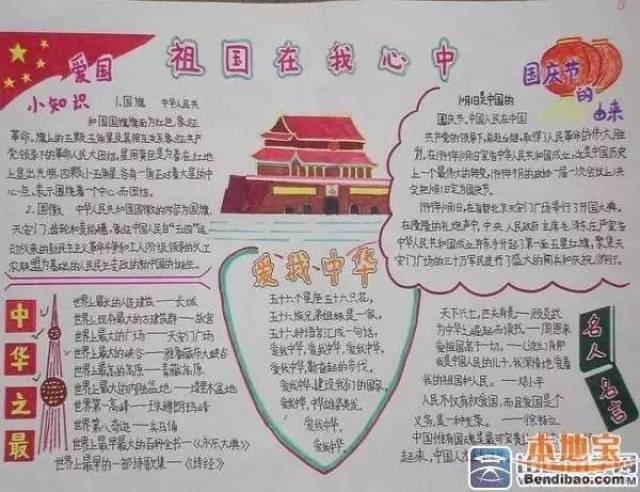 祖国在我心中
爱国
小知识
1.国旗 中华人民共
和国国旗旗面为红色,象征
革命。旗上的五颗五角星及其相互关系象征共产
党领导下的革命人民大团结。星用黄色是为着在红地
上显出光明,四颗小五角星各有一角正对着大星的中
心点,表示围绕着一个中心而团结。
2.国徽 中华人民共和国国徽的内容为国旗、
天安门、齿轮和麦稻穗,象征中国人民自“五四”运
动以来的新民主主义革命斗争和工人阶级领导的以工
农联盟为基础的人民民主专政的新中国的诞生。
国庆节
的
由来
10月1日是中国的
国庆节。中国人民在中国
共产党的领导下,前赴后继,取得了人民革命的伟大胜
1949年10月1日,在首都北京天安门广场举行了开国大典。
在隆隆的礼炮声中,中央人民政府主席毛泽东庄严宣告
中华人民共和国成立并亲手升起了第一面五星红旗。聚集天
安门广场的三十万军民进行了盛大的阅兵和庆祝游行。
爱我中华
五十六个星座五十六只花,
五十六族兄弟姐妹是一家,
五十六种语言汇成一句话,
爱我中华,爱我中华,爱我中华。
爱我中华,健奋起的步伐,
爱我中华,建设我们的国家,
爱我中华,中华雄姿英发,
爱我中华,
爱我中华。
中华之最
世界上最长的人造建筑——长城
世界上现存最大的古建筑群——故宫
世界上最大的广场——天安门广场
世界上最大的峡谷——雅鲁藏布大峡谷
世界上最高的高原——青藏高原
世界上最大的内陆盆地——塔里木盆地
世界第一高峰——珠穆朗玛峰
世界第八奇迹——兵马俑
世界上最早最大的百科全书——《永乐大典》
世界上最早的一部诗歌集——《诗经》
名人
名言
天下兴亡,匹夫有责——顾炎武
为中华之崛起而读书——周恩来
我是中国人民的儿子,我深情地爱着
我的祖国和人民。——邓小平
人民不仅有权爱国,而且爱国是个
义务,是一种光荣。——徐特立
本地宝
Bendibao.com